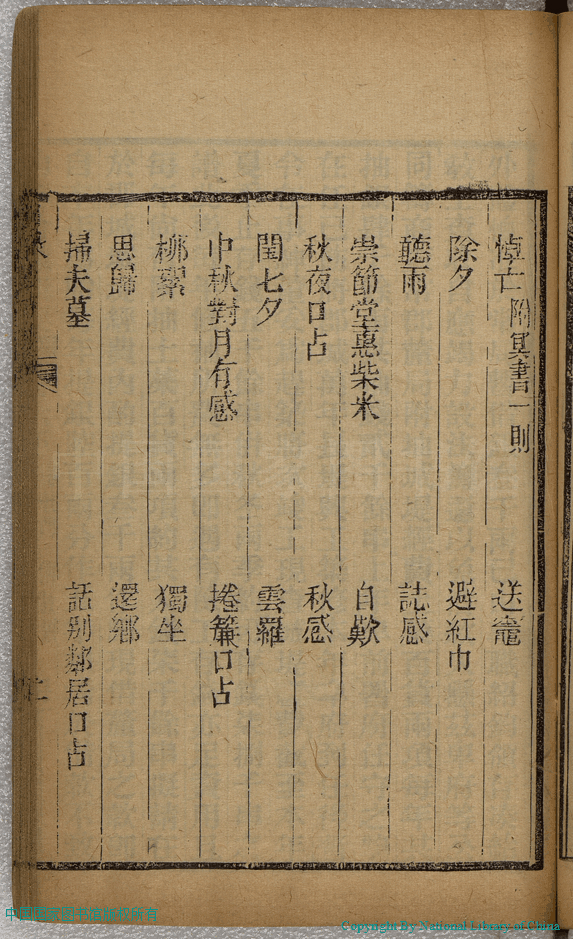 悼亡 附冥書一則 送竈
除夕 避紅巾
聽雨 誌感
崇節堂惠柴米 自歎
秋夜口占 秋感
閏七夕 雲羅
中秋對月有感 捲簾口占
柳絮 獨坐
思歸 還鄉
掃夫墓 話别鄰居口占
二
Copyright By National Library of China